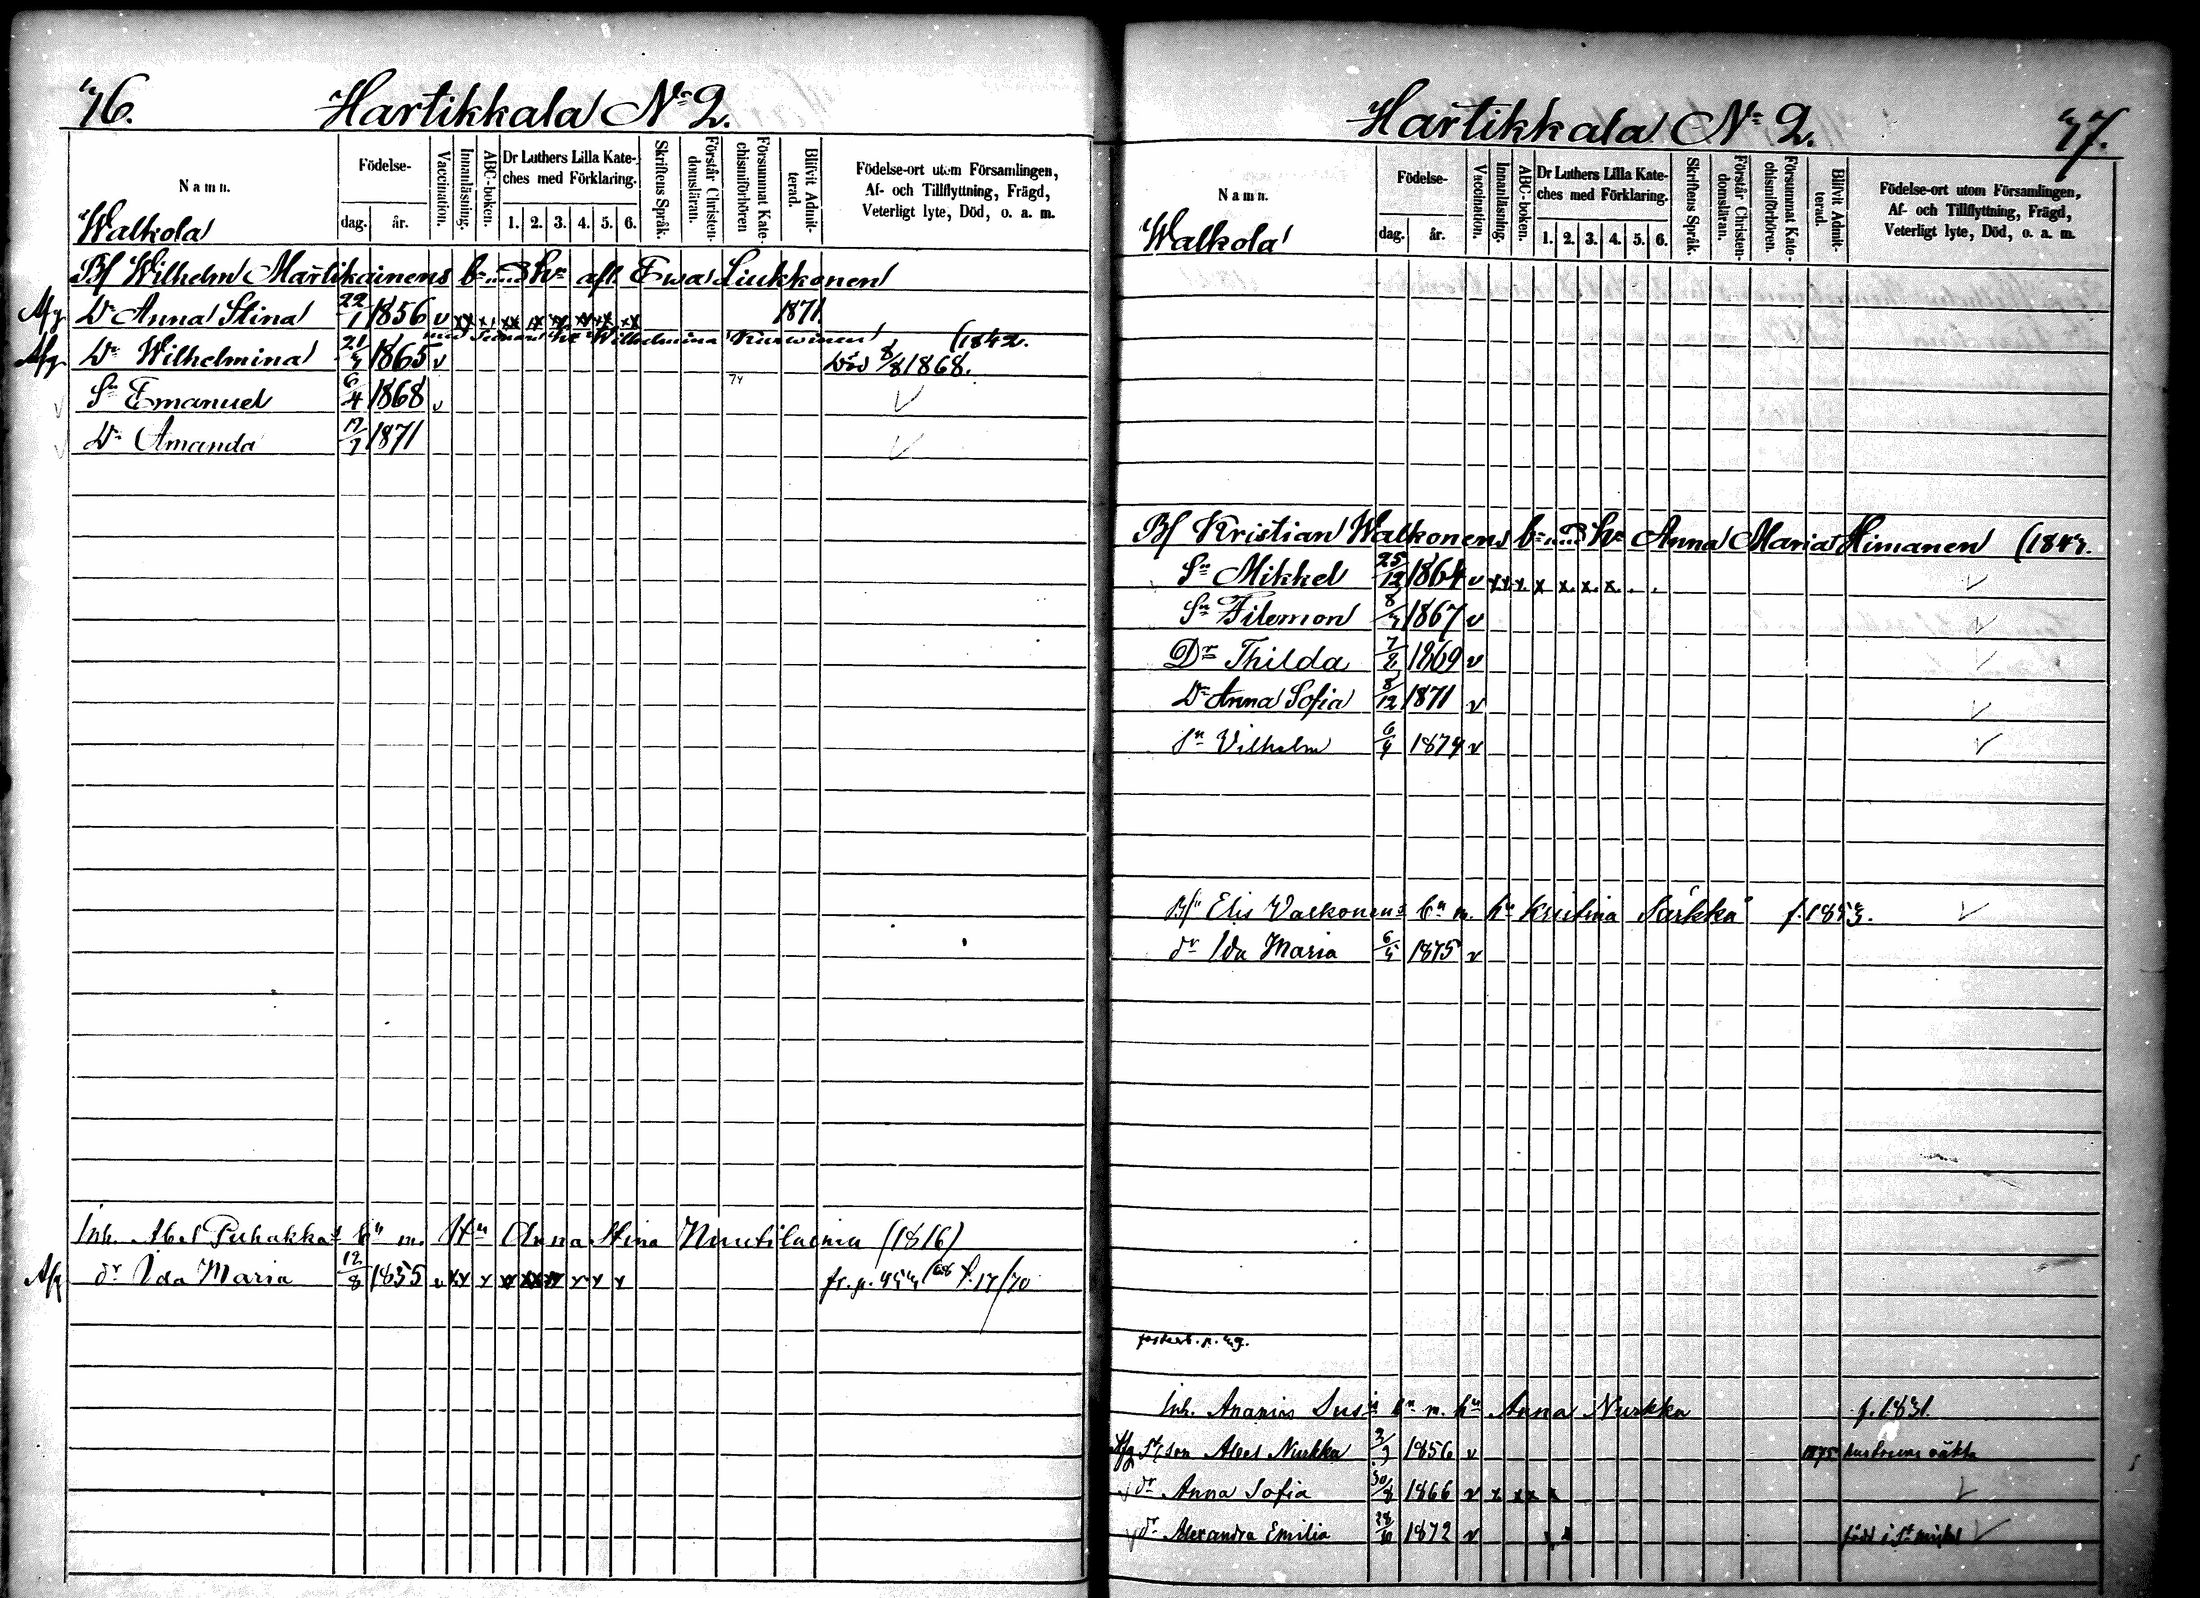 76.
Hartikkala No 2.
Namn.
Födelse-
dag.
år.
Vaccination.
Innanläsning.
ABC-boken.
Dr Luthers Lilla Kate-
ches med Förklaring.
1. 2. 3. 4. 5. 6.
Skriftens Språk.
Förstår Christen-
domsläran.
Försummat Kate-
chismiförhören
Blifvit Admit-
terad.
Födelse-ort utom Församlingen,
Af- och Tillflyttning, Frägd,
Veterligt lyte, Död, o. a. m.
Walkola
Bf Wilhelm Martikainens bn med hu afl. Ewa Liukkonen
Afg Dr Anna Stina 22/1 1856 v 1871
med hu Wilhelmina (1842.
Afg Dr Wilhelmina 21/7 1865 v död 8/8 1868.
Sn Emanuel 6/4 1868 v 74
Dr Amanda 17/7 1871
Inh. Abel Puhakkas bn m. Hu Anna Stina Nuutilainen (1816)
Afg dr Ida Maria 12/8 1855 v
Hartikkala No 2.
77.
Namn.
Födelse-
dag.
år.
Vaccination.
Innanläsning.
ABC-boken.
Dr Luthers Lilla Kate-
ches med Förklaring.
1. 2. 3. 4. 5. 6.
Skriftens Språk.
Förstår Christen-
domsläran.
Försummat Kate-
chismiförhören.
Blifvit Admit-
terad.
Födelse-ort utom Församlingen,
Af- och Tillflyttning, Frägd,
Veterligt lyte, Död, o. a. m.
Walkola
Bf Kristian Walkonens bn med hu Anna Maria Himanen
Sn Mikkel 25/12 1864 v
Sn Filemon 8/7 1867 v
Dr Thilda 7/8 1869 v
Dr Anna Sofia 8/12 1871 v
sn Vilhelm 6/4 1874 v
Bf Elis Valkonens bn m. hu Kristina Särkkä
dr Ida Maria 6/5 1875 v
Inh. Ananias Susis bn m. hu Anna Nurkka f. 1831.
Afg son Abel Nurkka 1856 v 1875
dr Anna Sofia 30/8 1866 v
dr Alexandra Emilia 1872 v född i St Michel